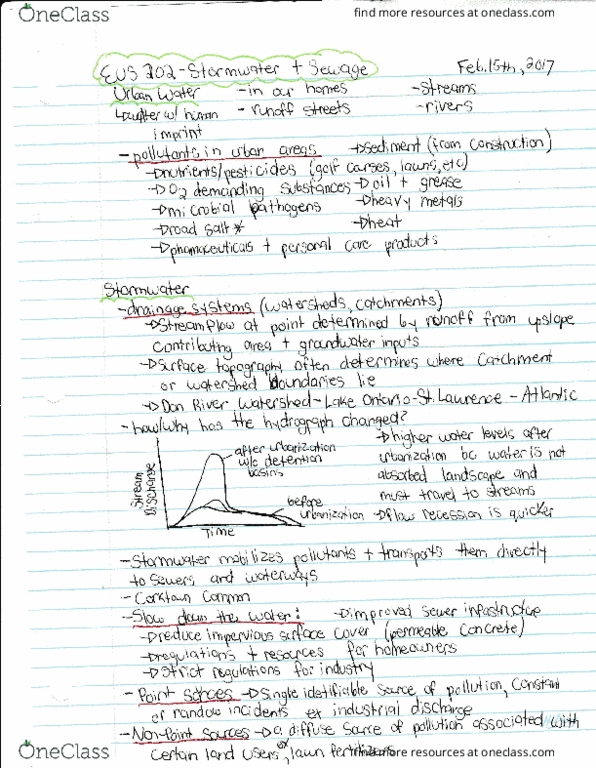 OneClass
find more resources at oneclass.com
EUS 202 - Stormwater + Sewage Feb. 15th, 2017
Urban Water - in our homes - streams
↳water w/ human - runoff streets - rivers
imprint
- pollutants in urban areas →sediment (from construction)
→nutrients/pesticides (golf courses, lawns, etc)
→O2 demanding substances →oil + grease
→microbial pathogens →heavy metals
→road salt* →heat
→pharmaceuticals + personal care products
Stormwater
- drainage systems (watersheds, catchments)
→Streamflow at point determined by runoff from upslope
contributing area + groundwater inputs
→Surface topography often determines where catchment
or watershed boundaries lie
→Don River Watershed - Lake Ontario - St. Lawrence - Atlantic
- how/why has the hydrograph changed?
→higher water levels after
urbanization bc water is not
absorbed landscape and
must travel to streams
→flow recession is quicker
Stream Discharge
after urbanization
w/o detention
basins
before
urbanization
Time
- Stormwater mobilizes pollutants + transports them directly
to sewers and waterways
- Corktown Common
- Slow down the water: →improved sewer infastructue
→reduce impervious surface cover (permeable concrete)
→regulations + resources for homeowners
→strict regulations for industry
- Point sorces →single identifiable source of pollution, constant
or random incidents ex industrial discharge
- Non-Point Sources →a diffuse source of pollution associated with
certain land users, ex lawn fertilizers
OneClass
find more resources at oneclass.com